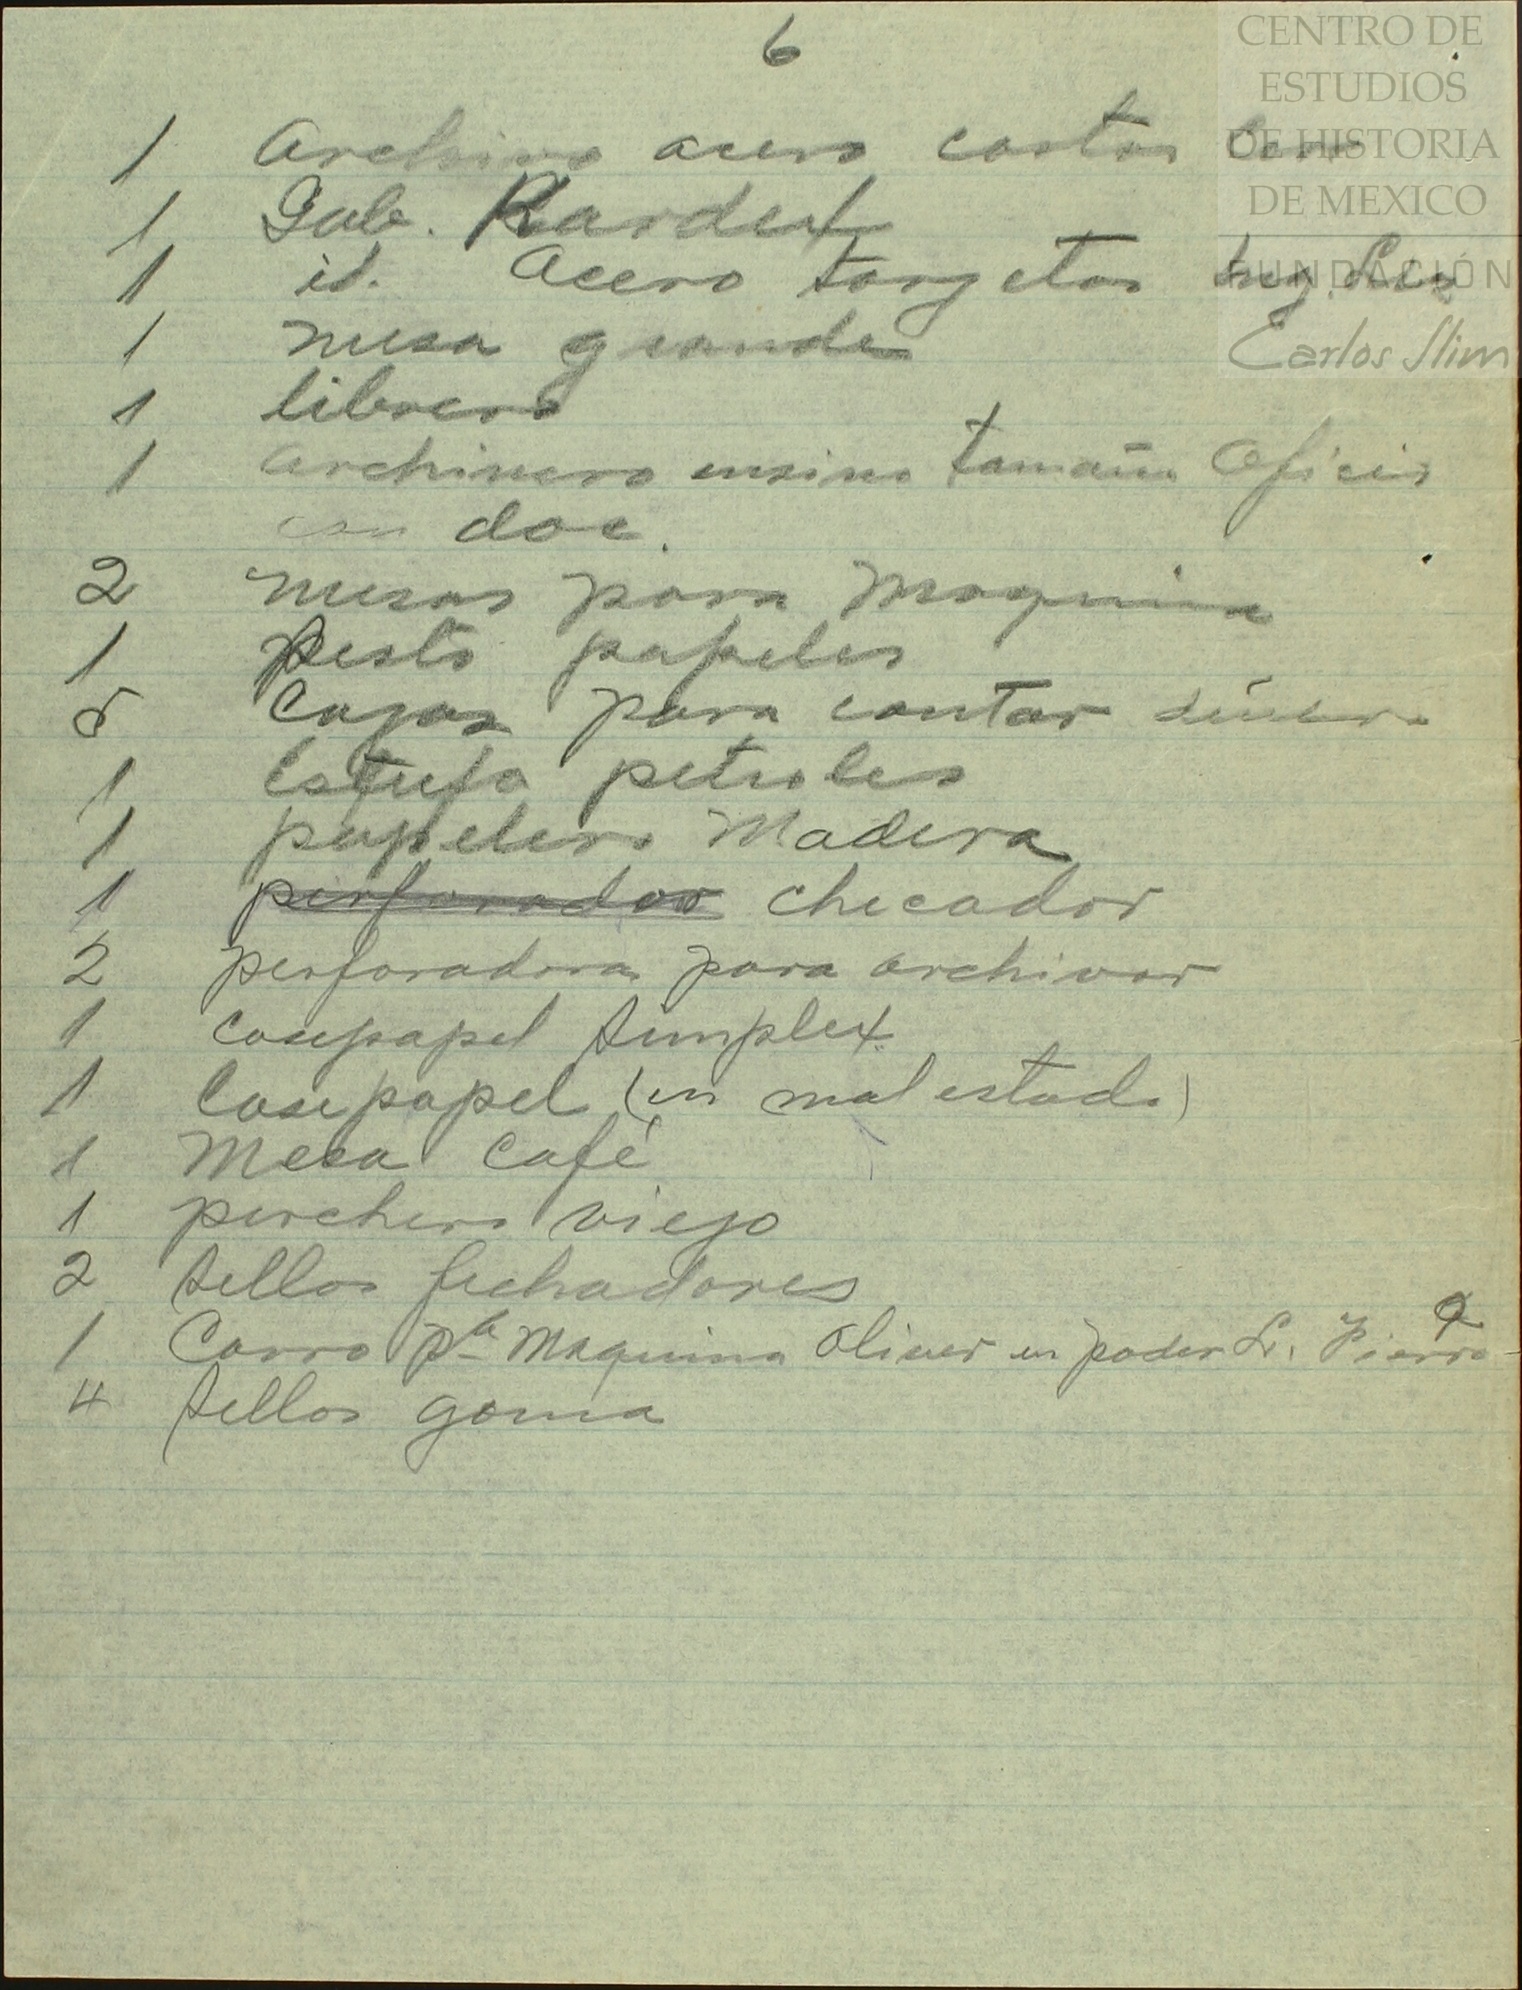 6
1 Archivo acero cartas
1 Gab. Kardex
1 id. Acero targetas
1 mesa grande
1 librero
1 archivero encino tamaño Oficio
con doc.
2 mesas para Maquina
1 sesto papeles
5 Cajas para contar dinero
1 Estufa petroleo
1 papelero Madera
1 perforador checador
2 perforadoras para archivar
1 Cosepapel Simplex
1 Cosepapel (en mal estado)
1 Mesa Café
1 perchero viejo
2 Sellos fechadores
1 Carro pa Maquina Oliver en poder L. Pierre
4 Sellos goma
CENTRO DE
ESTUDIOS
DE HISTORIA
DE MEXICO
FUNDACIÓN
Carlos Slim